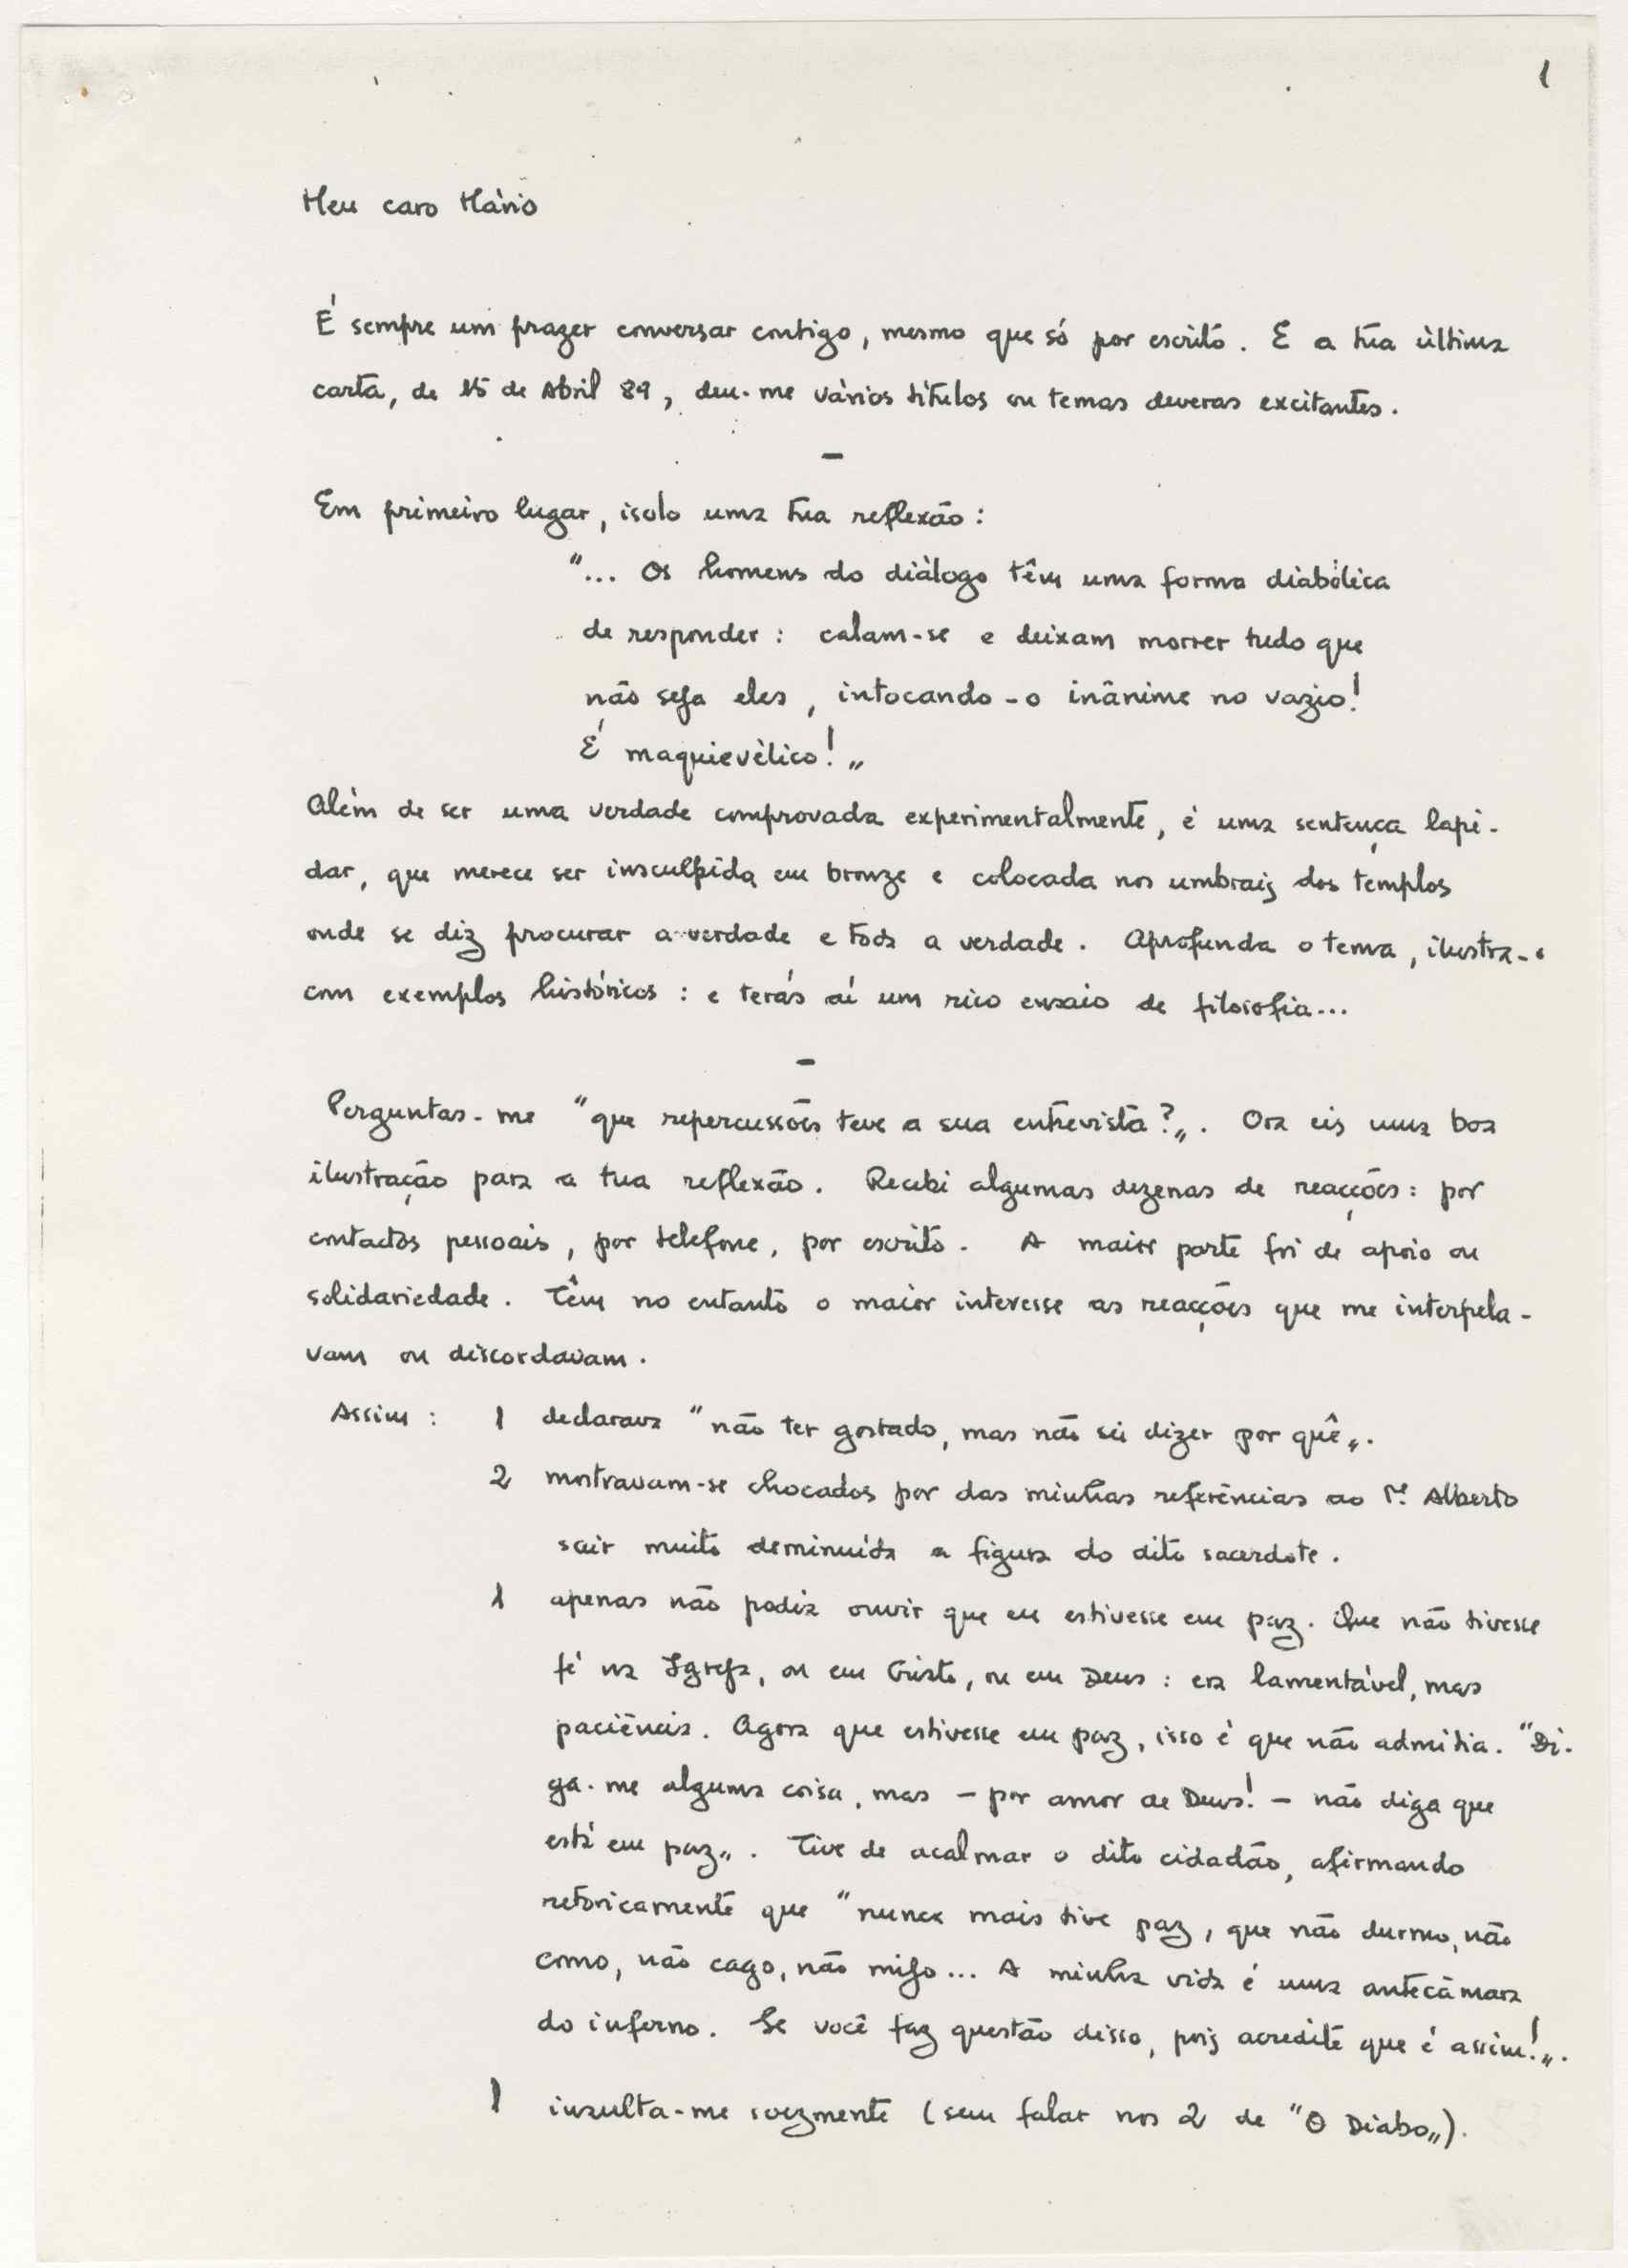 1
Meu caro Mário
É sempre um prazer conversar contigo, mesmo que só por escrito. E a tua ùltima
carta, de 15 de Abril 89, deu-me vários títulos ou temas deveras excitantes.
—
Em primeiro lugar, isolo uma tua reflexão:
"... Os homens do diálogo têm uma forma diabólica
de responder: calam-se e deixam morrer tudo que
não seja eles, intocando-o inânime no vazio!
É maquievèlico!"
Além de ser uma verdade comprovada experimentalmente, é uma sentença lapi-
dar, que merece ser insculpida em bronze e colocada nos umbrais dos templos
onde se diz procurar a verdade e toda a verdade. Aprofunda o tema, ilustra-o
com exemplos históricos: e terás aí um rico ensaio de filosofia...
—
Perguntas-me "que repercussões teve a sua entrevista?". Ora eis uma boa
ilustração para a tua reflexão. Recebi algumas dezenas de reacções: por
contactos pessoais, por telefone, por escrito. A maior parte foi de apoio ou
solidariedade. Têm no entanto o maior interesse as reacções que me interpela-
vam ou discordavam.
Assim: 1 declarava "não ter gostado, mas não sei dizer por quê".
2 mostravam-se chocados por das minhas referências ao P. Alberto
sair muito deminuída a figura do dito sacerdote.
1 apenas não podia ouvir que eu estivesse em paz. Que não tivesse
fé na Igreja, ou em Cristo, ou em Deus: era lamentável, mas
paciência. Agora que estivesse em paz, isso é que não admitia. "Di-
ga-me alguma coisa, mas - por amor de Deus! - não diga que
está em paz". Tive de acalmar o dito cidadão, afirmando
retoricamente que "nunca mais tive paz, que não durmo, não
como, não cago, não mijo... A minha vida é uma antecâmara
do inferno. Se você faz questão disso, pois acredite que é assim!".
1 insulta-me soezmente (sem falar nos 2 de "O Diabo").